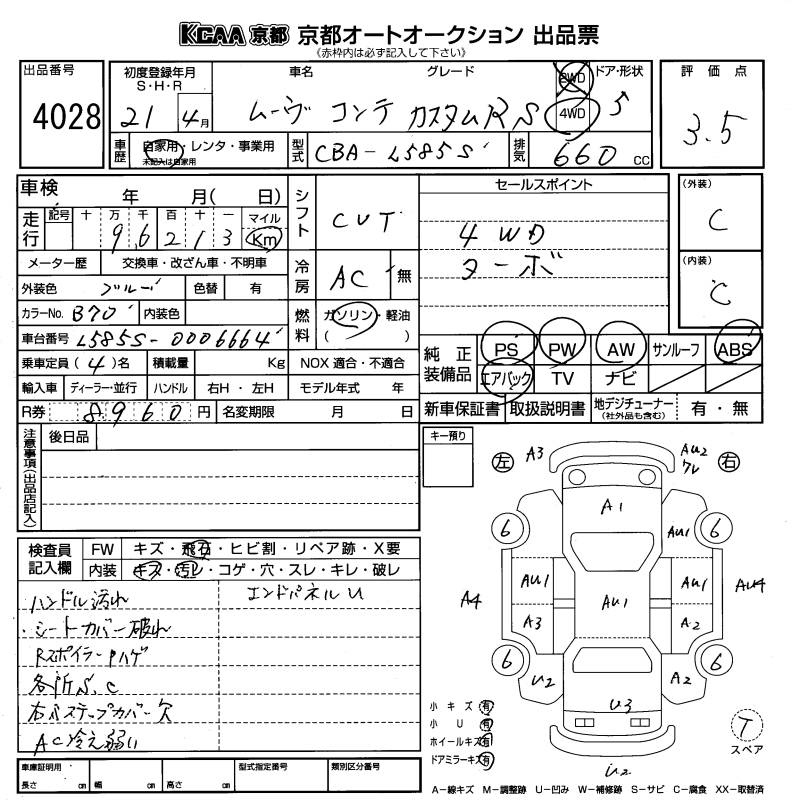 KCAA 京都 京都オートオークション 出品票
《赤枠内は必ず記入して下さい》
出品番号 4028
初度登録年月 S・H・R 21 4月
車名 グレード ムーヴ コンテ カスタムRS
2WD 4WD
ドア・形状 5
評価点 3.5
車歴 自家用・レンタ・事業用 未記入は自家用
型式 CBA-L585S
排気 660 cc
車検 年 月( 日)
走行 記号 十 万 千 百 十 一 マイル Km
9 6 2 1 3
メーター歴 交換車・改ざん車・不明車
外装色 ブルー 色替 有
カラーNo. B70 内装色
車台番号 L585S-0006664
乗車定員 (4)名 積載量 Kg NOX 適合・不適合
輸入車 ディーラー・並行 ハンドル 右H・左H モデル年式 年
R券 8960 円 名変期限 月 日
シフト CVT
冷房 AC 無
燃料 ガソリン・軽油 ( )
セールスポイント
4WD
ターボ
(外装) C
(内装) C
純正装備品 PS PW AW サンルーフ ABS
エアバック TV ナビ
新車保証書 取扱説明書 地デジチューナー (社外品も含む) 有・無
注意事項(出品店記入) 後日品
キー預り
検査員記入欄 FW キズ・飛石・ヒビ割・リペア跡・X要
内装 キズ・汚レ・コゲ・穴・スレ・キレ・破レ
ハンドル汚れ エンドパネルU
・シートカバー破れ
Rスポイラー Pハゲ
各所S.C
右ステップカバー欠
AC冷え弱い
左 A3 AU2 ワレ 右
A1
6 AU1 6
A4 AU1 AU1 AU1 AU4
A3 A2
6 U2 A2 6
U3
U2
小キズ 有
小U 有
ホイールキズ 有
ドアミラーキズ 有
T
スペア
車庫証明用 長さ cm 幅 cm 高さ cm
型式指定番号 類別区分番号
A-線キズ M-調整跡 U-凹み W-補修跡 S-サビ C-腐食 XX-取替済